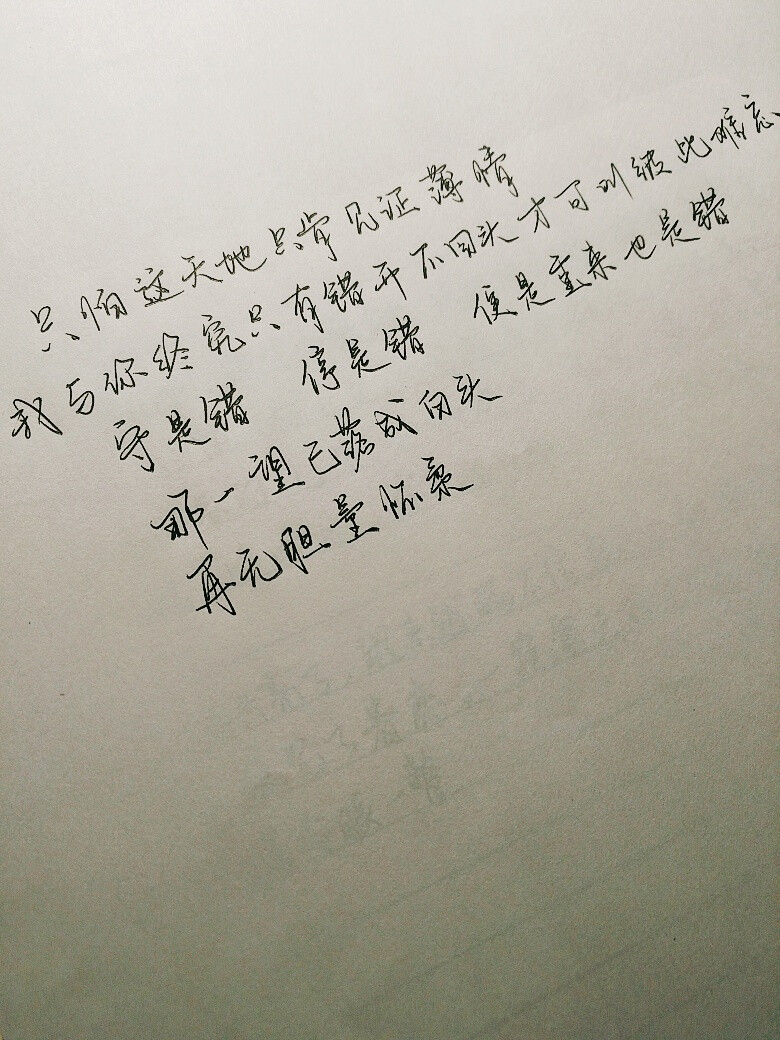 只怕这天地只肯见证薄情
我与你终究只有错开不回头才可叫彼此难忘
守是错 停是错 便是重来也是错
那一望已落成白头
再无胆量怀柔